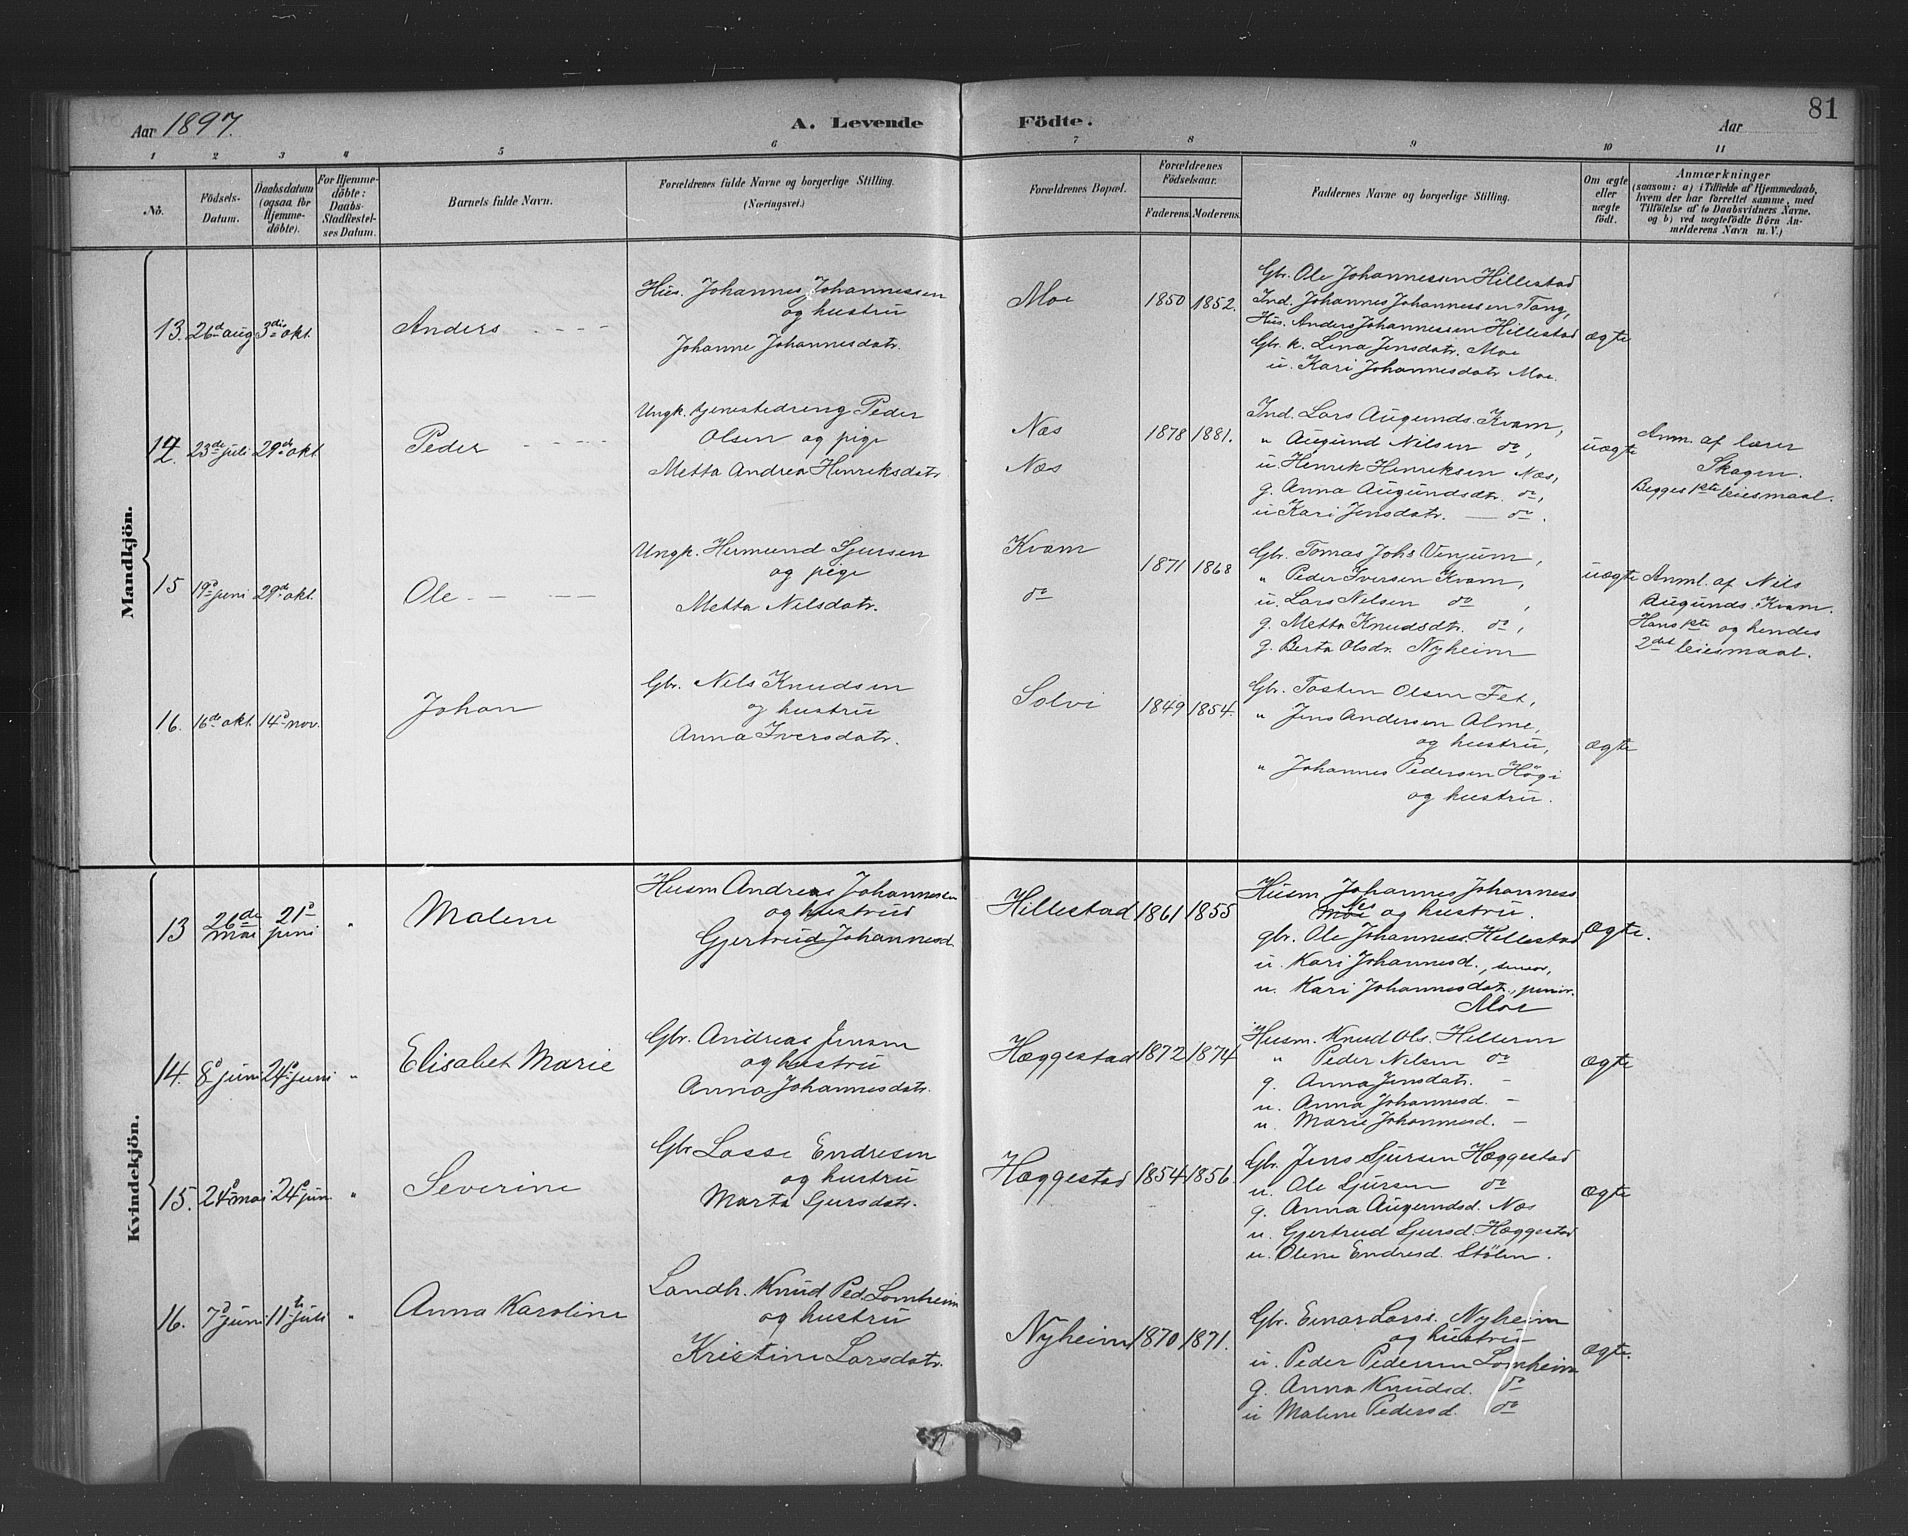 Aar 1897.
A. Levende Födte.
Aar
81
1 2 3 4 5 6 7 8 9 10 11
No.
Födsels-Datum.
Daabsdatum (ogsaa for Hjemme-döbte).
For Hjemme-döbte: Daabs-Stadfæstel-ses Datum.
Barnets fulde Navn.
Forældrenes fulde Navne og borgerlige Stilling.
(Næringsvei.)
Forældrenes Bopæl.
Forældrenes Födselsaar.
Faderens. Moderens.
Faddernes Navne og borgerlige Stilling.
Om ægte eller uægte födt.
Anmærkninger
(saasom: a) i Tilfælde af Hjemmedaab,
hvem der har forrettet samme, med
Tilföielse af to Daabsvidners Navne,
og b) ved uægtefödte Börn An-
melderens Navn m. V.)
Mandkjön.
13. 26d aug 3die okt. Anders
Hus. Johannes Johannessen
og hustru
Johanne Johannesdatr.
Moe 1850 1852.
Gbr. Ole Johannessen Hillestad
Ind. Johannes Johannessen Tang,
Hus. Anders Johannessen Hillestad
Gbr. k. Lina Jensdatr. Moe
u. Kari Johannesdatr Moe.
ægte
14. 23de juli 29de okt Peder
Ungk. tjenestedreng Peder
Olsen og pige
Metta Andrea Henriksdatr.
Næs
Næs
1878 1881.
Ind. Lars Augunds. Kvam,
" Augund Nilsen do,
u. Henrik Henriksen Næs,
g. Anna Augundsdtr. do,
u Kari Jensdatr. — do.
uægte
Anm. af lærer
Skagen.
Begges 1ste leiesmaal.
15 19d juni 29de okt. Ole
Ungk. Hermund Sjursen
og pige
Metta Nilsdatr.
Kvam
do
1871 1868
Gbr. Tomas Johs Venjum,
" Peder Iversen Kvam,
u. Lars Nilsen do,
g. Metta Knudsdtr. do,
g. Berta Olsdr. Nyheim
uægte
Anml. af Nils
Augunds. Kvam.
Hans 1ste og hendes
2det leiesmaal.
16. 16de okt. 14d nov. Johan
Gbr. Nils Knudsen
og hustru
Anna Iversdatr.
Solvi 1849 1854.
Gbr. Tosten Olsen Fet,
" Jens Andersen Alme,
og hustru,
" Johannes Pedersen Högi
og hustru.
ægte
Kvindekjön.
13 26de mai 21d juni " Malene
Husm Andreas Johannessen
og hustrud
Gjertrud Johannesd.
Hillestad 1861 1855
Husm Johannes Johanness
Næs
Moe og hustru.
gbr. Ole Johanness. Hillestad
u. Kari Johannesd., senior,
u. Kari Johannesdat., junior.
Moe
ægte.
14. 8d juni 24d juni " Elisabet Marie
Gbr. Andreas Jensen
og hustru
Anna Johannesdatr.
Hæggestad 1872 1874
Husm. Knud Ols. Hillerm
" Peder Nilsen do
g. Anna Jensdatr. —
u. Anna Johannesd. —
u. Marie Johannesd. —
ægte
15. 24d mai 24d jun " Severine
Gbr Lasse Endresen
og hustru
Marta Sjursdatr.
Hæggestad 1854 1856.
Gbr. Jens Sjursen Hæggestad
u. Ole Sjursen do
g. Anna Augundsd. Næs
u. Gjertrud Sjursd. Hæggestad
u. Oline Endresd. Stölen.
ægte
16. 7d juni 11te juli " Anna Karoline
Landh. Knud Ped. Lomheim
og hustru
Kristine Larsdatr.
Nyheim 1870 1871.
Gbr. Einar Larss. Nyheim
og hustru
u. Peder Pedersen Lomheim
g. Anna Knudsd. do
u Malene Pedersd. do
ægte.